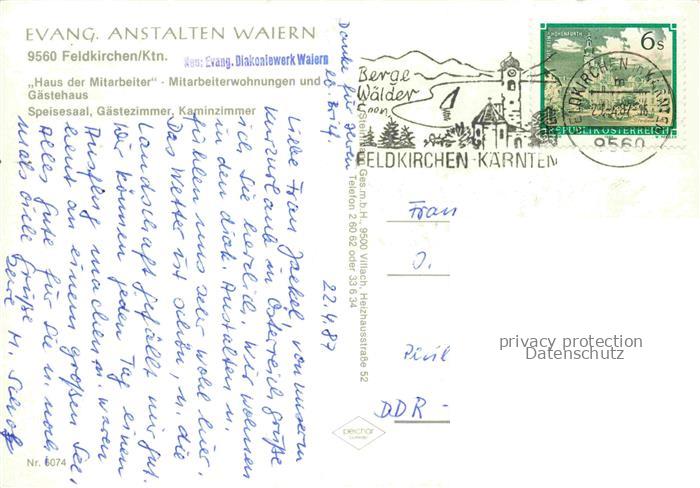 EVANG. ANSTALTEN WAIERN
9560 Feldkirchen/Ktn.
Neu: Evang. Diakoniewerk Waiern
„Haus der Mitarbeiter" - Mitarbeiterwohnungen und
Gästehaus
Speisesaal, Gästezimmer, Kaminzimmer
Danke für Ihren
22.4.87
Liebe Frau Jaekel, von unserm
Kurzurlaub in Österreich grüße
ich Sie herzlich. Wir wohnen
in den diak. Anstalten u.
fühlen uns sehr wohl hier.
Das Wetter ist schön, u. die
Landschaft gefällt mir gut.
Wir können jeden Tag einen
Ausflug machen u. waren
heut an einem großen See.
Alles gute für Sie u. noch-
mals viele Grüße
Ihre H.
Nr. 6074
Ges.m.b.H., 9500 Villach, Heizhausstraße 52
Telefon 2 60 62 oder 33 6 34
Berge
Wälder
Seen
FELDKIRCHEN-KÄRNTEN
6 s
REPUBLIK ÖSTERREICH
FELDKIRCHEN
9560
Frau
J.
DDR -
privacy protection
Datenschutz